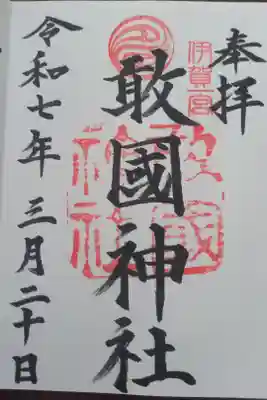 奉拝
伊賀一宮
敢國神社
敢國神社
令和七年三月二十日